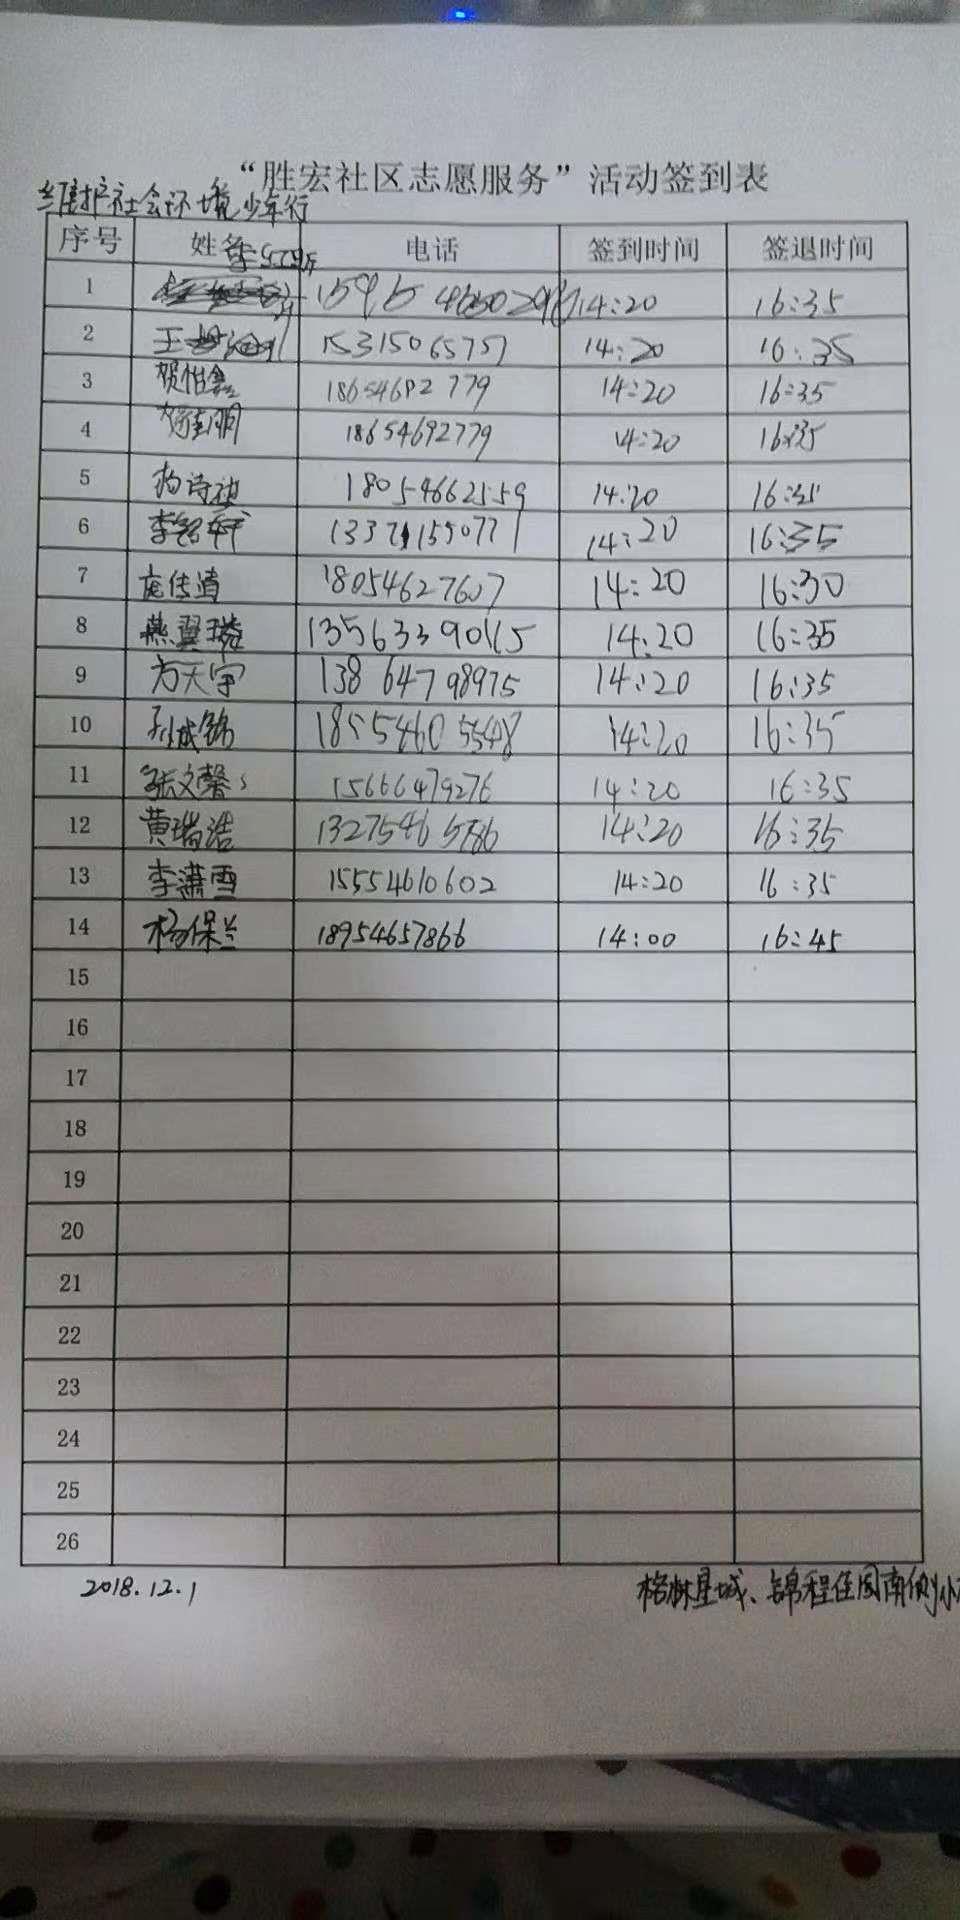 “胜宏社区志愿服务”活动签到表
维护社会环境少年行
序号 姓名 电话 签到时间 签退时间
1 14:20 16:35
2 王 15315065757 14:20 16:35
3 贺怡鑫 18654692779 14:20 16:35
4 18654692779 14:20 16:35
5 杨诗祺 18054662559 14:20 16:35
6 李铭轩 13371159077 14:20 16:35
7 庞传清 18054627607 14:20 16:30
8 燕翼璘 13563390115 14:20 16:35
9 方天宇 13864798975 14:20 16:35
10 孙成锦 18554605548 14:20 16:35
11 张文馨 15666479276 14:20 16:35
12 黄瑞浩 13275465786 14:20 16:35
13 李潇雪 15554610602 14:20 16:35
14 杨保兰 18954657866 14:00 16:45
15
16
17
18
19
20
21
22
23
24
25
26
2018.12.1 格林星城、锦程佳园南侧小